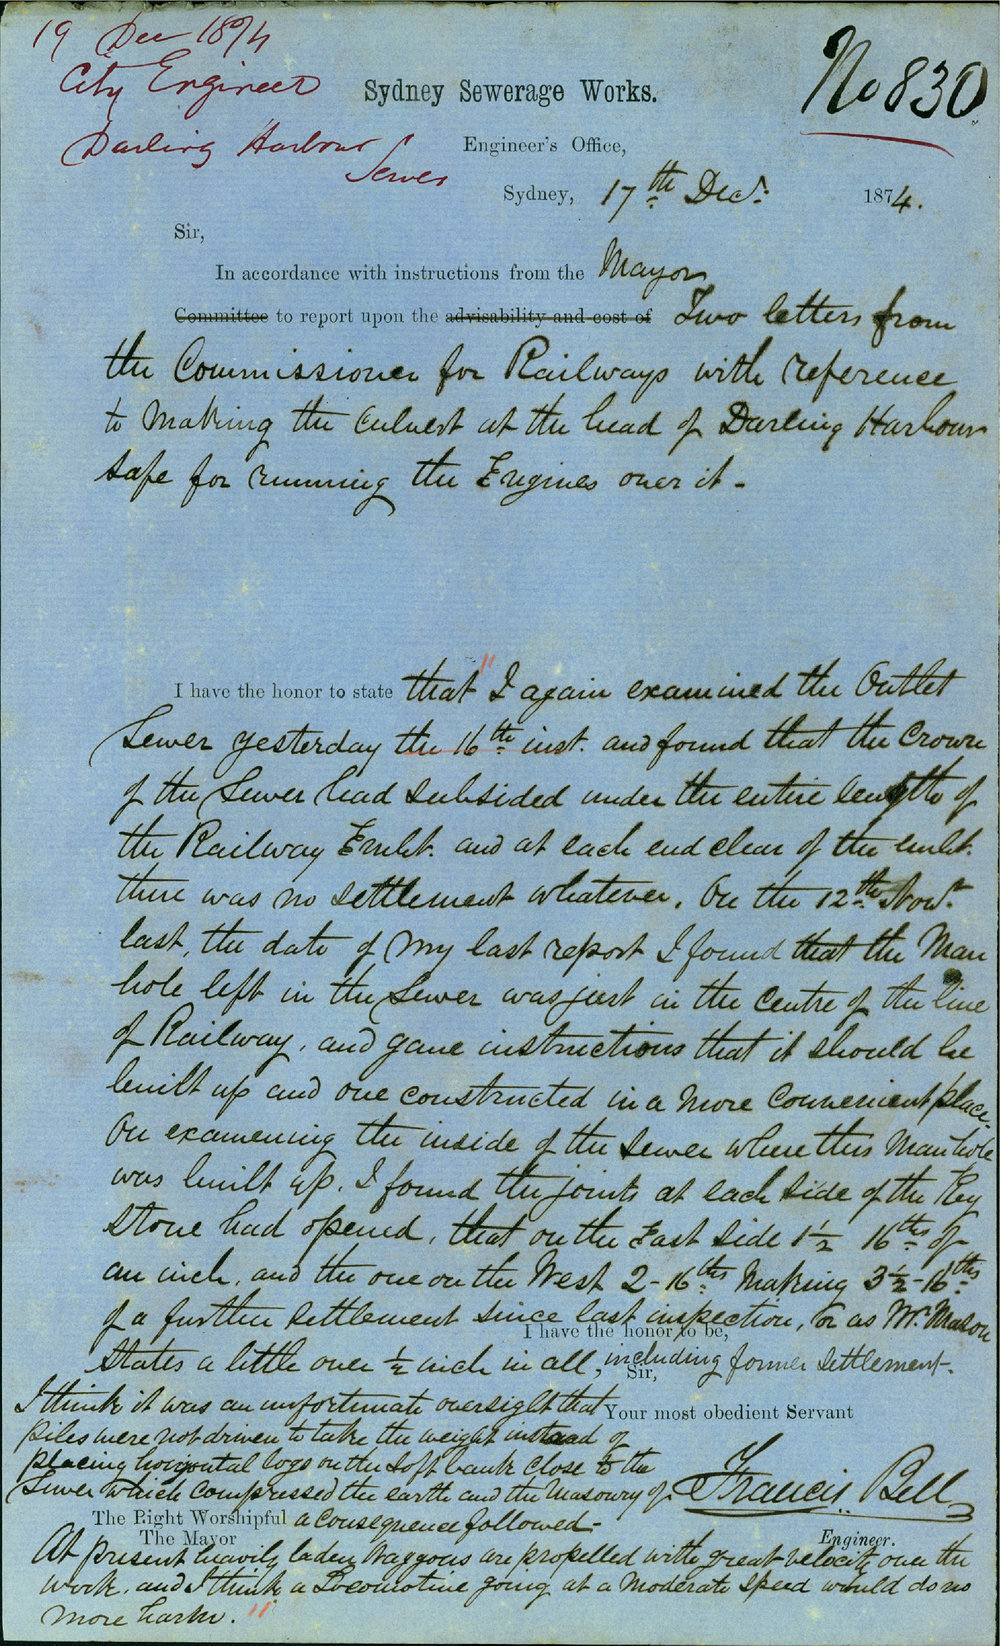 19 Dec 1874
City Engineer
Darling Harbour
Sewer
No 830
Sydney Sewerage Works.
Engineer's Office,
Sydney, 17th Decr. 1874.
Sir,
In accordance with instructions from the Mayor
Committee to report upon the advisability and cost of Two letters from
the Commissioner for Railways with reference
to making the Culvert at the head of Darling Harbour
safe for running the Engines over it -
I have the honor to state that "I again examined the Outlet
Sewer yesterday the 16th inst. and found that the Crown
of the Sewer had subsided under the entire length of
the Railway Embt. and at each end clear of the embt.
there was no settlement whatever. On the 12th Novr.
last, the date of my last report I found that the Man
hole left in the Sewer was just in the centre of the line
of Railway, and gave instructions that it should be
built up and one constructed in a more convenient place.
On examening the inside of the Sewer where this Manhole
was built up. I found the joints at each side of the Key
Stone had opened, that on the East side 1½ 16ths of
an inch, and the one on the West 2-16ths Making 3½-16ths
of a further settlement since last inspection, or as Mr. Mason
I have the honor to be,
States a little over ½ inch in all, including former settlement.
Sir,
I think it was an unfortunate oversight that
Your most obedient Servant
piles were not driven to take the weight instead of
placing horizontal logs on the soft bank close to the
Sewer which compressed the earth and the Masonry of
Francis Bell
The Right Worshipful a consequence followed -
The Mayor
Engineer.
At present heavily laden Waggons are propelled with great velocity over the
work. and I think a Locomotive going at a moderate speed would do no
more harm. "